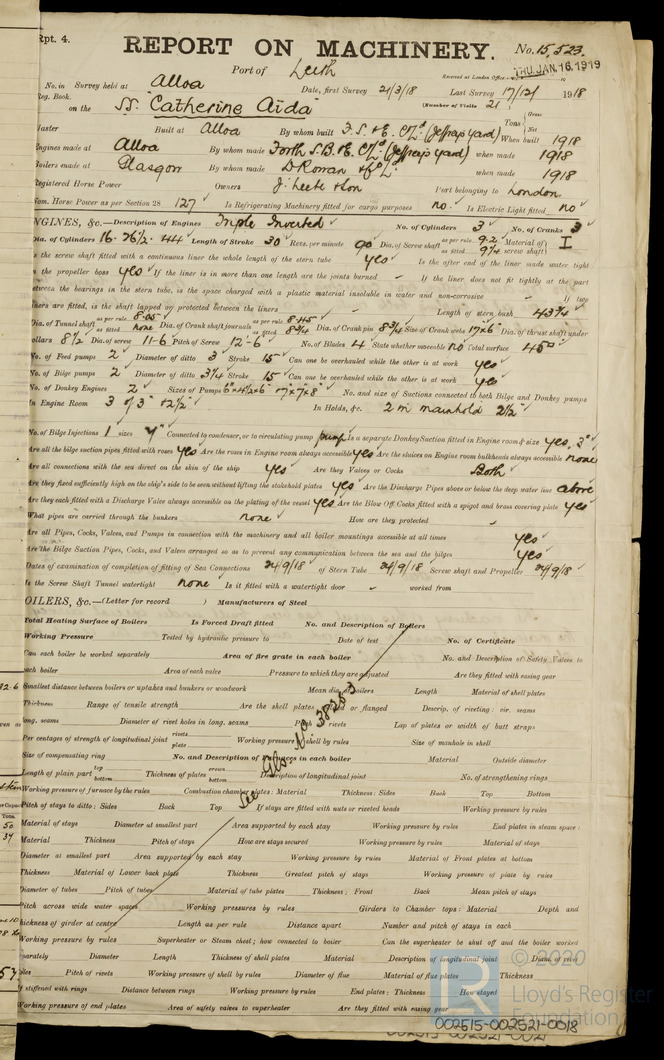 Rpt. 4.
REPORT ON MACHINERY. No. 15,523.
Port of Leith
Received at London Office THU. JAN. 16 1919
No. in Survey held at Alloa Date, first Survey 21/3/18 Last Survey 17/12/ 1918
Reg. Book. (Number of Visits 21)
on the SS. "Catherine Aida" Tons { Gross Net
Master Built at Alloa By whom built (Jeffrey's Yard) When built 1918
Engines made at Alloa By whom made Forth S.B. & E. (Jeffrey's Yard) when made 1918
Boilers made at Glasgow By whom made D Rowan & Co Ld. when made 1918
Registered Horse Power Owners J. Leete & Son Port belonging to London
Nom. Horse Power as per Section 28 127 Is Refrigerating Machinery fitted for cargo purposes no. Is Electric Light fitted no
ENGINES, &c.—Description of Engines Triple Inverted No. of Cylinders 3 No. of Cranks 3
Dia. of Cylinders 16-26½-44 Length of Stroke 30 Revs. per minute 90 Dia. of Screw shaft as per rule 9.2 as fitted 9¼ Material of screw shaft I
Is the screw shaft fitted with a continuous liner the whole length of the stern tube yes Is the after end of the liner made water tight
in the propeller boss yes If the liner is in more than one length are the joints burned If the liner does not fit tightly at the part
between the bearings in the stern tube, is the space charged with a plastic material insoluble in water and non-corrosive If two
liners are fitted, is the shaft lapped or protected between the liners Length of stern bush
Dia. of Tunnel shaft as per rule 8.05 as fitted none Dia. of Crank shaft journals as per rule 8.45 as fitted 8¾ Dia. of Crank pin 8¾ Size of Crank webs 17×6 Dia. of thrust shaft under
collars 8½ Dia. of screw 11-6 Pitch of Screw 12-6 No. of Blades 4 State whether moveable no Total surface 45
No. of Feed pumps 2 Diameter of ditto 3 Stroke 15 Can one be overhauled while the other is at work yes
No. of Bilge pumps 2 Diameter of ditto 3¼ Stroke 15 Can one be overhauled while the other is at work yes
No. of Donkey Engines 2 Sizes of Pumps 6"×4½×6" +7"×7×8" No. and size of Suctions connected to both Bilge and Donkey pumps
In Engine Room 3 of 3" & 2½" In Holds, &c. 2 in mainhold 2½"
No. of Bilge Injections 1 sizes 4" Connected to condenser, or to circulating pump pump Is a separate Donkey Suction fitted in Engine room & size yes, 3"
Are all the bilge suction pipes fitted with roses yes Are the roses in Engine room always accessible yes Are the sluices on Engine room bulkheads always accessible none
Are all connections with the sea direct on the skin of the ship yes Are they Valves or Cocks Both
Are they fixed sufficiently high on the ship's side to be seen without lifting the stokehold plates yes Are the Discharge Pipes above or below the deep water line above
Are they each fitted with a Discharge Valve always accessible on the plating of the vessel yes Are the Blow Off Cocks fitted with a spigot and brass covering plate yes
What pipes are carried through the bunkers none How are they protected
Are all Pipes, Cocks, Valves, and Pumps in connection with the machinery and all boiler mountings accessible at all times yes
Are the Bilge Suction Pipes, Cocks, and Valves arranged so as to prevent any communication between the sea and the bilges yes
Dates of examination of completion of fitting of Sea Connections 24/9/18 of Stern Tube 24/9/18 Screw shaft and Propeller 24/9/18
Is the Screw Shaft Tunnel watertight none Is it fitted with a watertight door worked from
BOILERS, &c.—(Letter for record ) Manufacturers of Steel
Total Heating Surface of Boilers Is Forced Draft fitted No. and Description of Boilers
Working Pressure Tested by hydraulic pressure to Date of test No. of Certificate
Can each boiler be worked separately Area of fire grate in each boiler No. and Description of Safety Valves to
each boiler Area of each valve Pressure to which they are adjusted Are they fitted with easing gear
Smallest distance between boilers or uptakes and bunkers or woodwork Mean dia. of boilers Length Material of shell plates
Thickness Range of tensile strength Are the shell plates or flanged Descrip. of riveting: cir. seams
long. seams Diameter of rivet holes in long. seams Pitch of rivets Lap of plates or width of butt straps
Per centages of strength of longitudinal joint rivets plate Working pressure of shell by rules Size of manhole in shell
Size of compensating ring No. and Description of Furnaces in each boiler Material Outside diameter
Length of plain part top bottom Thickness of plates crown bottom Description of longitudinal joint No. of strengthening rings
Working pressure of furnace by the rules Combustion chamber plates: Material Thickness: Sides Back Top Bottom
Pitch of stays to ditto: Sides Back Top If stays are fitted with nuts or riveted heads Working pressure by rules
See Gls. No 38253
Material of stays Diameter at smallest part Area supported by each stay Working pressure by rules End plates in steam space:
Material Thickness Pitch of stays How are stays secured Working pressure by rules Material of stays
Diameter at smallest part Area supported by each stay Working pressure by rules Material of Front plates at bottom
Thickness Material of Lower back plate Thickness Greatest pitch of stays Working pressure of plate by rules
Diameter of tubes Pitch of tubes Material of tube plates Thickness: Front Back Mean pitch of stays
Pitch across wide water spaces Working pressures by rules Girders to Chamber tops: Material Depth and
thickness of girder at centre Length as per rule Distance apart Number and pitch of stays in each
Working pressure by rules Superheater or Steam chest; how connected to boiler Can the superheater be shut off and the boiler worked
separately Diameter Length Thickness of shell plates Material Description of longitudinal joint Diam. of rivet
holes Pitch of rivets Working pressure of shell by rules Diameter of flue Material of flue plates Thickness
If stiffened with rings Distance between rings Working pressure by rules End plates: Thickness How stayed
Working pressure of end plates Area of safety valves to superheater Are they fitted with easing gear
© 2020
Lloyd's Register
Foundation
002515-002521-0018